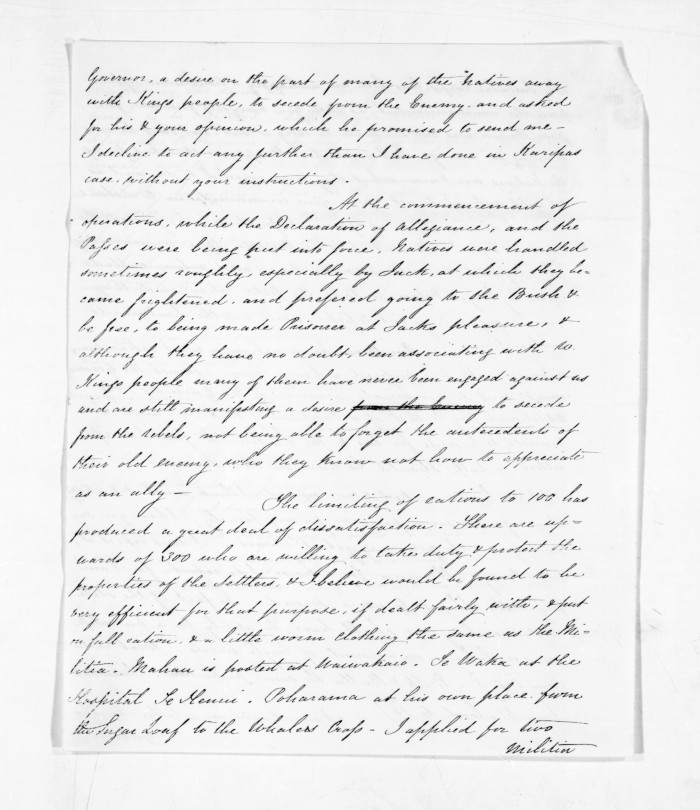 Governor, a desire on the part of many of the Natives away
with Kings people, to secede from the Enemy. and asked
for his & your opinion, which he promised to send me -
I decline to act any further than I have done in Karipas
case. without your instructions.
At the commencement of
operations, while the Declaration of Allegiance, and the
Passes were being put into force, Natives were handled
sometimes roughly, especially by Jack, at which they be-
came frightened. and prefered going to the Bush &
be free, to being made Prisoner at Jacks pleasure, &
although they have no doubt, been associating with W.
Kings people many of them have never been engaged against us
and are still manifesting a desire from the Enemy to secede
from the rebels, not being able to forget the antecedents of
their old enemy, who they know not how to appreciate
as an ally -
The limiting of rations to 100 has
produced a great deal of dissatisfaction. There are up-
wards of 300 who are willing to take duty & protect the
properties of the Settlers, & I believe would be found to be
very efficient for that purpose, if dealt fairly with, & put
on full ration, & a little worm clothing the same as the Mi-
litia. Mahau is posted at Waiwakaio. Te Waka at the
Hospital Te Henui. Poharama at his own place from
the Sugar Loaf to the Whalers Crop - I applied for two
militia